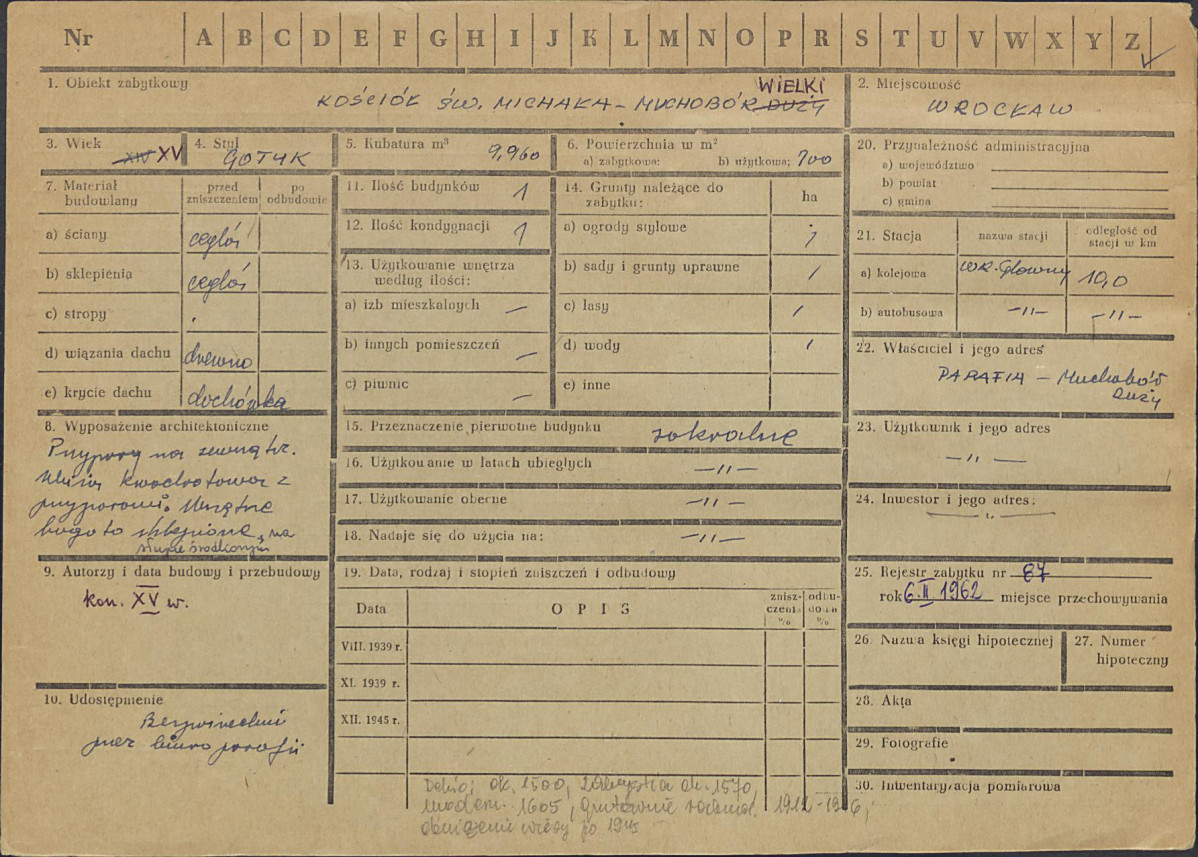 Nr A B C D E F G H I J K L M N O P R S T U V W X Y Z
1. Obiekt zabytkowy
WIELKI
KOŚCIÓŁ ŚW. MICHAŁA – MUCHOBÓR DUŻY
2. Miejscowość
WROCŁAW
3. Wiek
XIV XV
4. Styl
GOTYK
5. Kubatura m³
9,960
6. Powierzchnia w m²
a) zabytkowa: b) użytkowa; 700
20. Przynależność administracyjna
a) województwo
b) powiat
c) gmina
7. Materiał budowlany
przed zniszczeniem
po odbudowie
a) ściany cegła
b) sklepienia cegła
c) stropy
d) wiązania dachu drewno
e) krycie dachu dachówka
11. Ilość budynków 1
12. Ilość kondygnacji 1
13. Użytkowanie wnętrza
według ilości:
a) izb mieszkalnych –
b) innych pomieszczeń –
c) piwnic –
14. Grunty należące do
zabytku: ha
a) ogrody stylowe
b) sady i grunty uprawne /
c) lasy /
d) wody /
e) inne
21. Stacja
nazwa stacji
odległość od
stacji w km
a) kolejowa WR. Główny 10,0
b) autobusowa –//– –//–
22. Właściciel i jego adres
PARAFIA – Muchobór
Duży
8. Wyposażenie architektoniczne
Przypory na zewnątrz.
Wieża kwadratowa z
przyporami. Wnętrze
bogato sklepione, na
słupie środkowym
15. Przeznaczenie pierwotne budynku sakralne
16. Użytkowanie w latach ubiegłych –//–
17. Użytkowanie obecne –//–
18. Nadaje się do użycia na: –//–
23. Użytkownik i jego adres
–//–
24. Inwestor i jego adres:
9. Autorzy i data budowy i przebudowy
kon. XV w.
19. Data, rodzaj i stopień zniszczeń i odbudowy
Data OPIS
znisz-
czenia
%
odbu-
dowa
%
VIII. 1939 r.
XI. 1939 r.
XII. 1945 r.
25. Rejestr zabytku nr 87
rok 6.II 1962 miejsce przechowywania
26. Nazwa księgi hipotecznej
27. Numer
hipoteczny
10. Udostępnienie
przez biuro parafii
28. Akta
29. Fotografie
30. Inwentaryzacja pomiarowa
Dehio; ok. 1500, zakrystia ok. 1570,
modern. 1605, gruntownie
obniżenie wieży po 1945